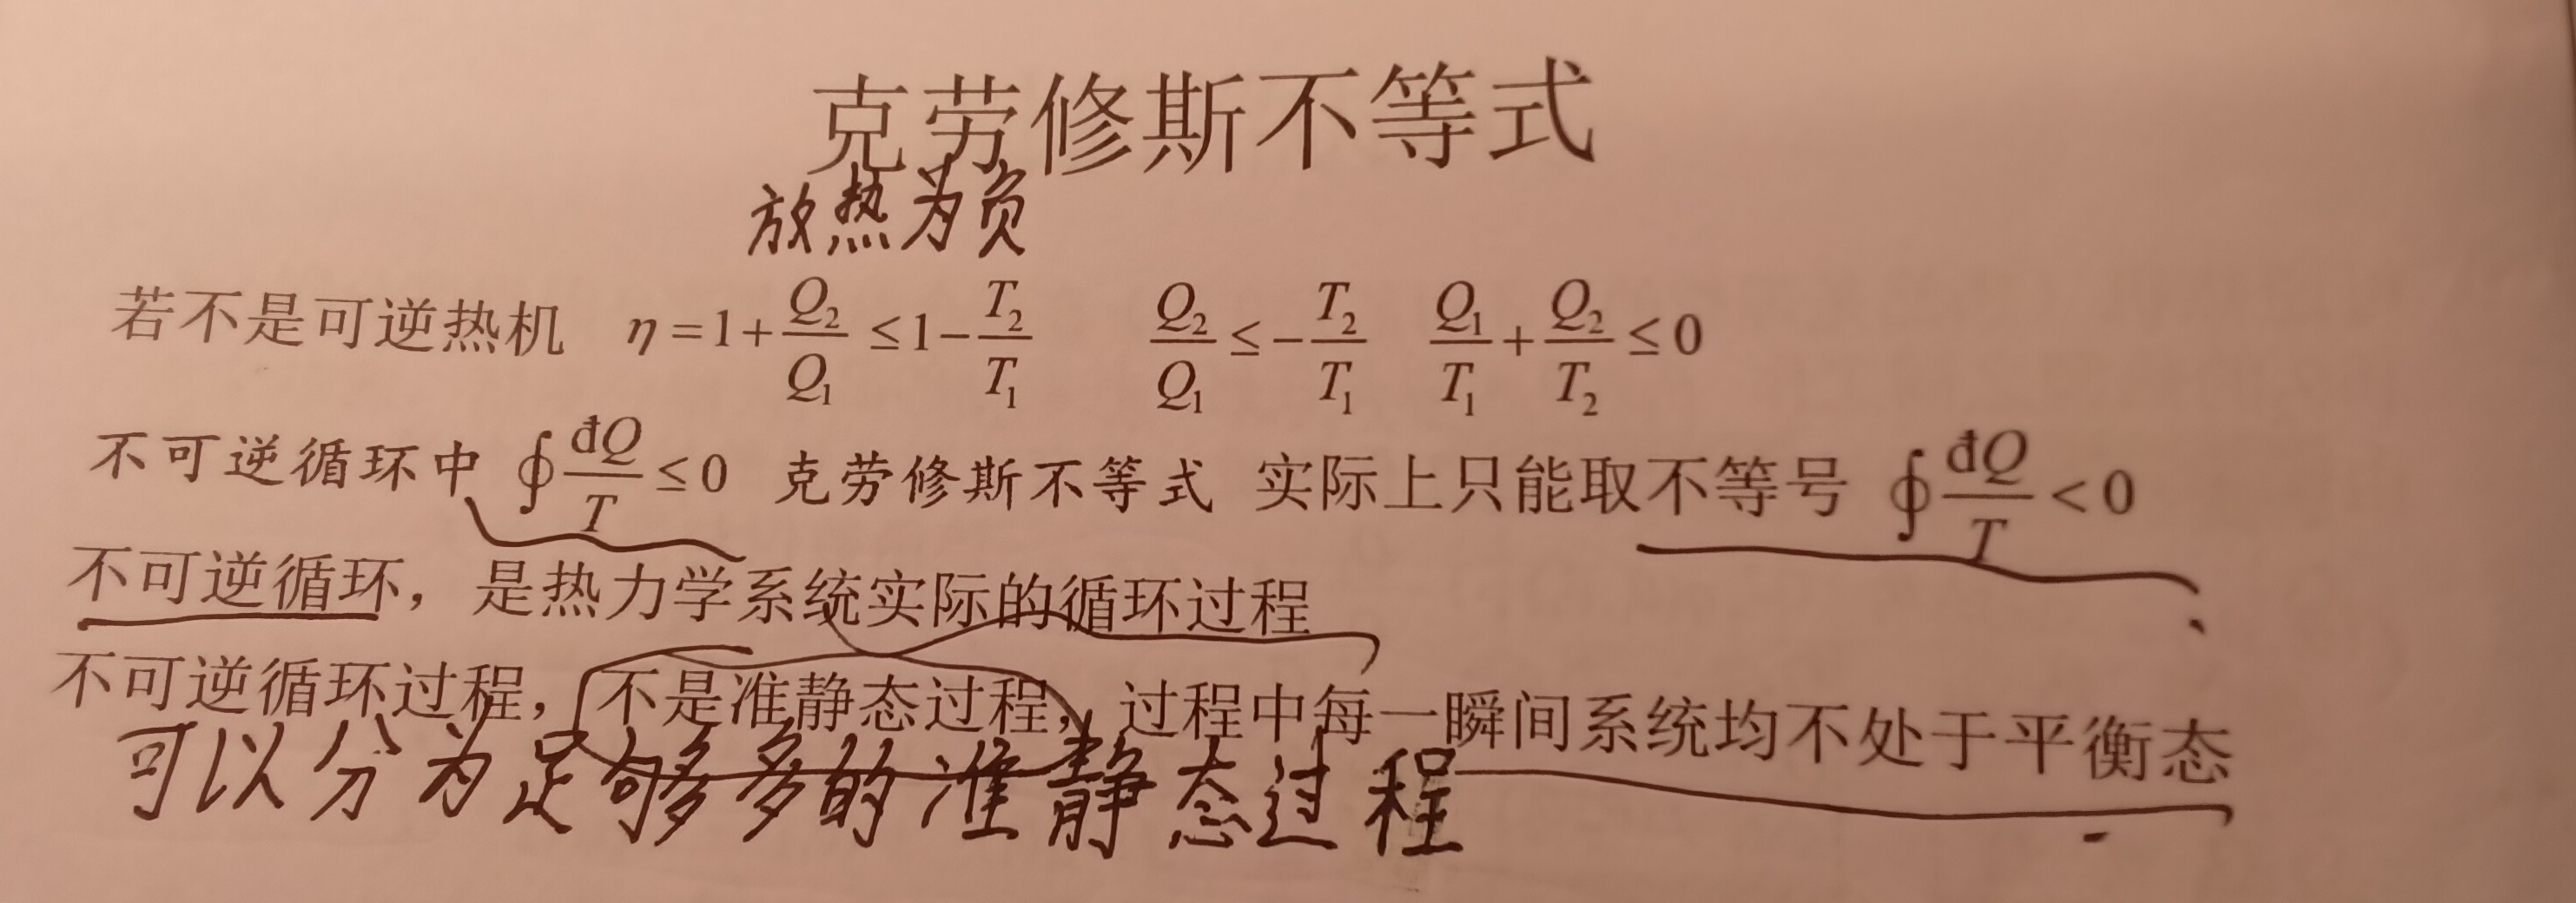 克劳修斯不等式
放热为负
若不是可逆热机 η=1+Q₂/Q₁ ≤1−T₂/T₁ Q₂/Q₁ ≤ −T₂/T₁ Q₁/T₁ + Q₂/T₂ ≤ 0
不可逆循环中 ∮đQ/T ≤ 0 克劳修斯不等式 实际上只能取不等号 ∮đQ/T < 0
不可逆循环，是热力学系统实际的循环过程
不可逆循环过程，不是准静态过程，过程中每一瞬间系统均不处于平衡态
可以分为足够多的准静态过程